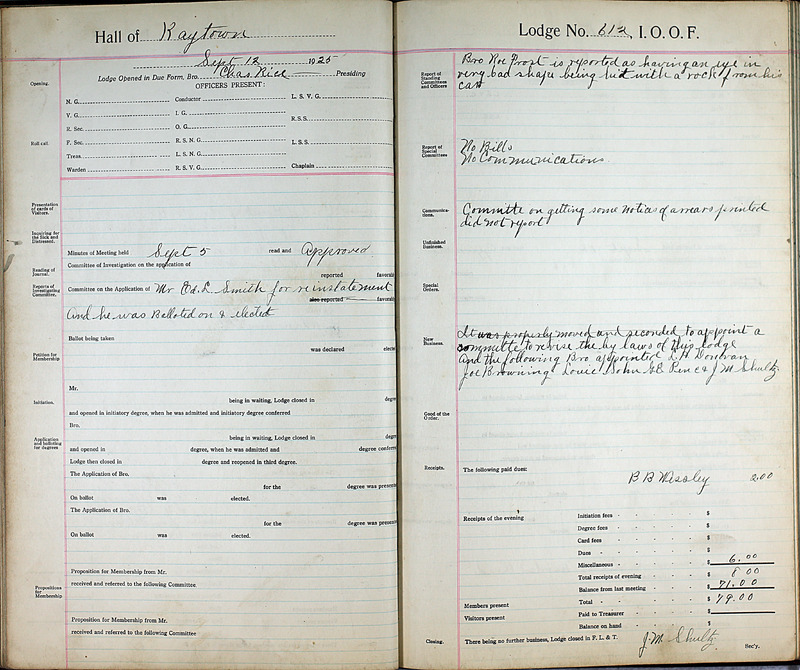 Hall of Raytown
Sept 12 1925
Lodge Opened in Due Form, Bro. Chas Rice Presiding
Opening.
OFFICERS PRESENT:
N. G. Conductor L. S. V. G.
V. G. I. G.
R.S.S.
R. Sec. O. G.
Roll call.
F. Sec. R. S. N. G. L.S.S.
Treas. L. S. N. G.
Warden R. S. V. G. Chaplain
Presentation of cards of Visitors.
Inquiring for the Sick and Distressed.
Minutes of Meeting held Sept 5 read and Approved
Reading of Journal.
Committee of Investigation on the application of
reported favorab
Reports of Investigating Committee.
Committee on the Application of Mr Ed. L. Smith for reinstatement
also reported favorab
And he was Balloted on & elected
Ballot being taken
was declared electe
Petition for Membership
Mr.
Initiation.
being in waiting, Lodge closed in degre
and opened in initiatory degree, when he was admitted and initiatory degree conferred
Bro.
Application and balloting for degrees
being in waiting, Lodge closed in degre
and opened in degree, when he was admitted and degree conferre
Lodge then closed in degree and reopened in third degree.
The Application of Bro.
for the degree was present
On ballot was elected.
The Application of Bro.
for the degree was present
On ballot was elected.
Proposition for Membership from Mr.
received and referred to the following Committee
Propositions for Membership
Proposition for Membership from Mr.
received and referred to the following Committee
Lodge No. 612, I. O. O. F.
Report of Standing Committees and Officers
Bro Roe Frost is reported as having an eye in
very bad shape being hit with a rock from his
car
Report of Special Committees
No Bills
No Communications
Communications.
Committe on getting some notias of arrears printed
did not report
Unfinished Business.
Special Orders.
New Business.
It was properly moved and seconded to appoint a
committe to revise the by laws of this lodge
And the following Bro appointed L H Donovan
Joe Browning Louie John GE Pence & J M Shultz
Good of the Order.
Receipts.
The following paid dues:
B B Wessley 2.00
Receipts of the evening
Initiation fees $
Degree fees $
Card fees $
Dues $
Miscellaneous $ 6.00
Total receipts of evening $ 8 00
Balance from last meeting $ 71.00
Members present
Total $ 79.00
Paid to Treasurer $
Visitors present
Balance on hand $
Closing.
There being no further business, Lodge closed in F. L. & T. J. M. Shultz Sec'y.